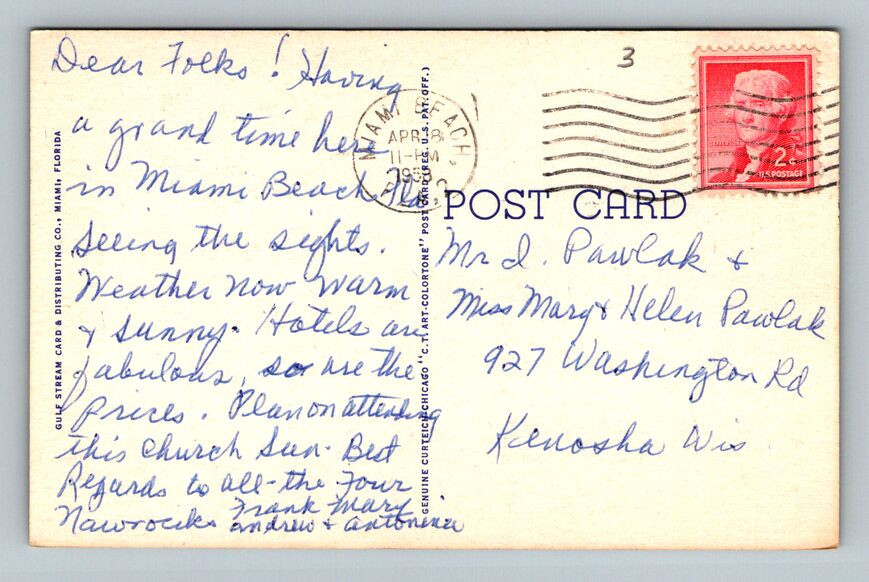 Dear Folks! Having
a grand time here
in Miami Beach, Fla.
seeing the sights.
Weather now warm
& sunny. Hotels are
fabulous, so are the
prices. Plan on attending
this church Sun. Best
Regards to all - the Four
Nawrockis Frank Mary
Andrew & Antoninia
3
MIAMI BEACH,
APR 8
11-PM
FLA.
2¢
U.S. POSTAGE
POST CARD
Mr I. Pawlak &
Miss Mary & Helen Pawlak
927 Washington Rd
Kenosha Wis
GULF STREAM CARD & DISTRIBUTING CO., MIAMI, FLORIDA
GENUINE CURTEICH-CHICAGO "C.T. ART-COLORTONE" POST CARD (REG. U.S. PAT. OFF.)